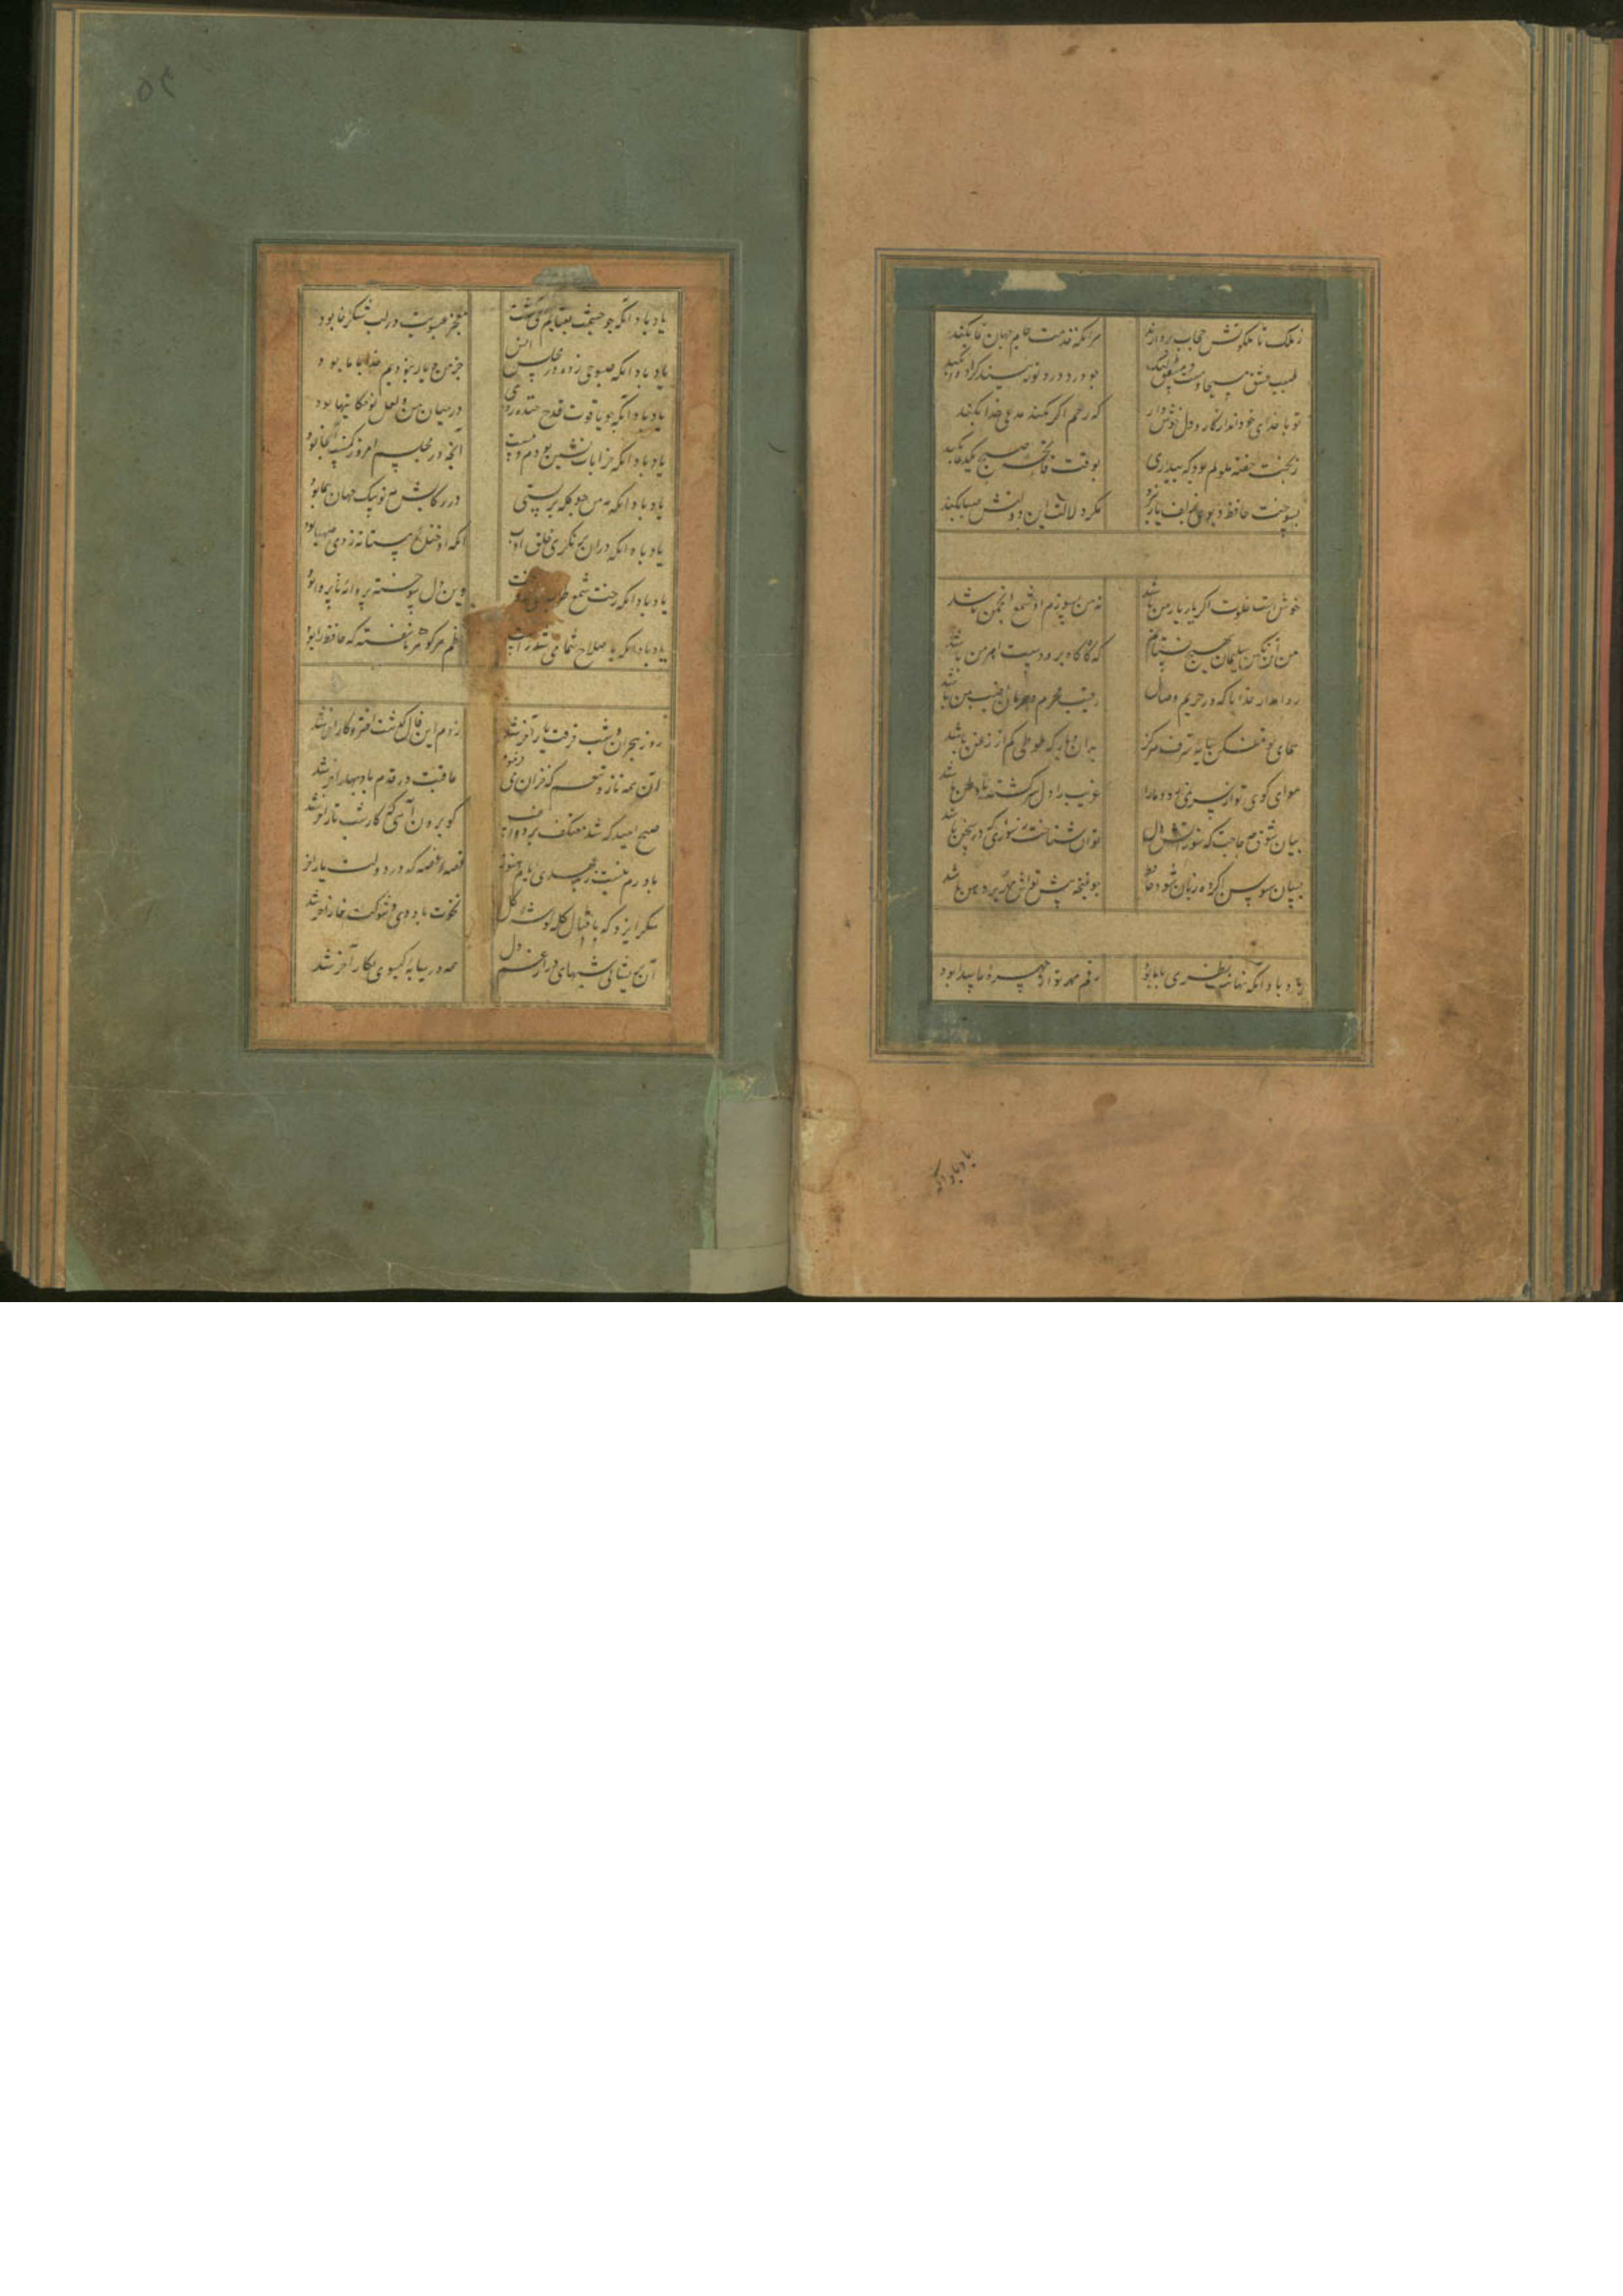 ز ملک تا ملکوتش حجاب بردارند هر انکه خدمت جام جهان نما بکند
طبیب عشق مسیحا دمست و مشفق لیک چو درد در تو نبیند کرا دوا بکند
تو با خدای خود انداز کار و دل خوش دار که رحم اگر نکند مدعی خدا بکند
ز بخت خفته ملولم بود که بیداری بوقت فاتحه صبح یک دعا بکند
بسوخت حافظ و بوی ز زلف یار نبرد مگر دلالت این دولتش صبا بکند
خوش است خلوت اگر یار یار من باشد نه من بسوزم و او شمع انجمن باشد
من آن نگین سلیمان بهیچ نستانم که گاه گاه برو دست اهرمن باشد
روا مدار خدایا که در حریم وصال رقیب محرم و حرمان نصیب من باشد
همای گو مفکن سایه شرف هرگز بدان دیار که طوطی کم از زغن باشد
هوای کوی تو از سر نمی رود مارا غریب را دل سرگشته با وطن باشد
بیان شوق چه حاجت که سوز آتش دل توان شناخت ز سوزی که در سخن باشد
بسان سوسن اگر ده زبان شود حافظ چو غنچه پیش تواش مهر بر دهن باشد
یاد باد آنکه نهانت نظری با ما بود رقم مهر تو بر چهره ما پیدا بود
یاد باد انکه
یاد باد انکه چو چشمت بعتابم می کشت معجز عیسویت در لب شکرخا بود
یاد باد انکه صبوحی زده در مجلس انس جز من و یار نبودیم و خدا با ما بود
یاد باد انکه چو یاقوت قدح خنده زدی در میان من و لعل تو حکایتها بود
یاد باد انکه خرابات نشین بودم و مست آنچه در مجلسم امروز کمست آنجا بود
یاد باد انکه مه من چو کله بربستی در رکابش مه نو پیک جهان پیما بود
یاد باد انکه در ان بزمگه خلق و ادب انکه او خنده مستانه زدی صهبا بود
یاد باد انکه رخت شمع طرب می افروخت وین دل سوخته پروانه ناپروا بود
یاد باد انکه باصلاح شما می شد راست نظم هر گوهر ناسفته که حافظ را بود
روز هجران و شب فرقت یار آخر شد زدم این فال و گذشت اختر و کار آخر شد
آن همه ناز و تنعم که خزان می فرمود عاقبت در قدم باد بهار آخر شد
صبح امید که شد معتکف پرده غیب گو برون آی که کار شب تار آخر شد
باورم نیست ز بدعهدی ایام هنوز قصه غصه که در دولت یار آخر
شکر ایزد که باقبال کله گوشه گل نخوت باد دی و شوکت خار آخر شد
آن پریشانی شبهای دراز و غم دل همه در سایه گیسوی نگار آخر شد